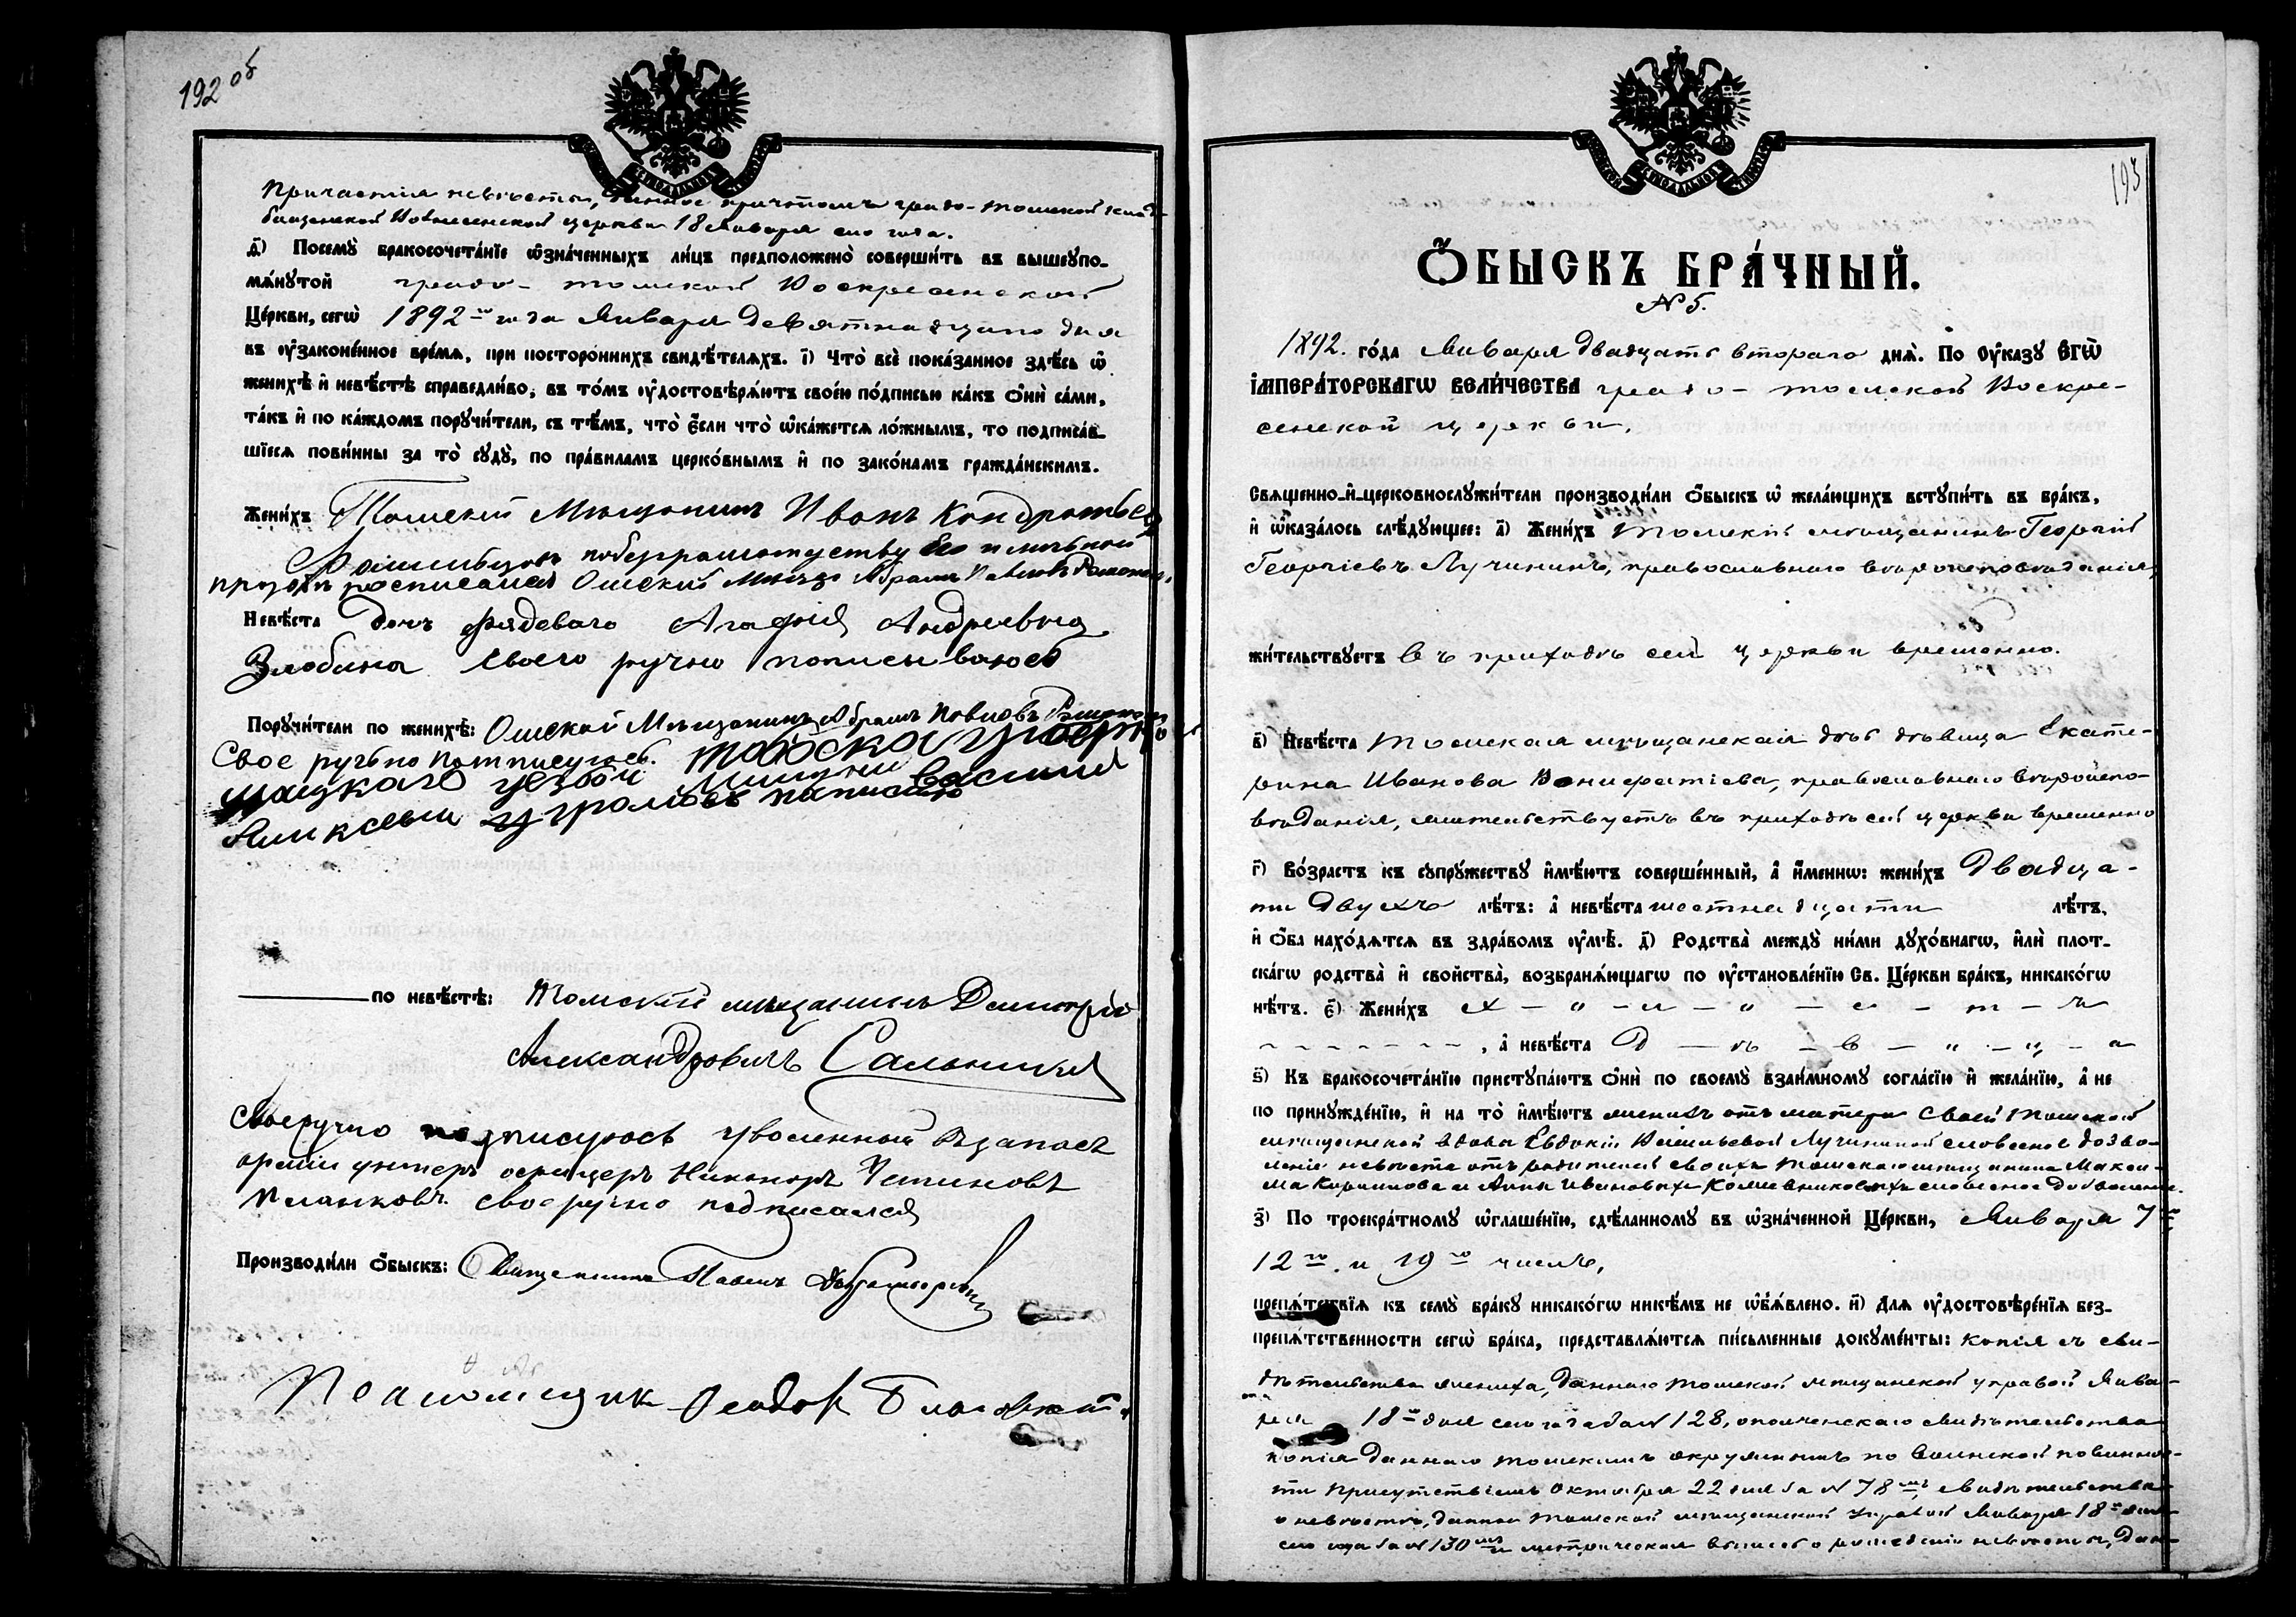 192 об
причастія невѣсты, данное причтомъ градо-томской клад-
бищенской Вознесенской церкви 18 Января сего года.
д҃) Посемꙋ̀ бракосочета́нїе ѡ҆зна́ченныхъ ли́цъ предположено̀ соверши́ть въ вышеꙋпо-
мѧ́нꙋтой градо-томской Воскресенской
Це́ркви, сегѡ̀ 1892 го года Января девятнадцатаго дня
въ ᲂу҆законе́нное вре́мѧ, при посторо́ннихъ свидѣ́телѧхъ. і҃) Что̀ всѐ пока́занное здѣ́сь ѡ҆
женихѣ̀ и҆ невѣ́стѣ справедли́во, въ то́мъ ᲂу҆достовѣрѧ́ютъ свое́ю по́дписью ка́къ ѻ҆нѝ са́ми,
та́къ и҆ по ка́ждомъ порꙋчи́тели, съ тѣ́мъ, что̀ є҆́сли что̀ ѡ҆ка́жетсѧ ло́жнымъ, то подписа́в-
шїесѧ пови́нны за то̀ сꙋдꙋ̀, по пра́виламъ церко́внымъ и҆ по зако́намъ гражда́нскимъ.
Жени́хъ Томскій Мѣщанинъ Иванъ Кондратьев
побезграмотдству Его и личьной
прозбѣ росписался Омскій Мѣщ Абрамъ Павловъ
Невѣ́ста дочь Рядеваго Агафія Андреевна
Злобина своего ручно пописываюсь
Порꙋчи́тели по женихѣ̀: Омской Мѣщанинъ Абрамъ Павловъ
Свое ручьно подписуюсь. Тобоской губер
Василий
Аликсеви
по невѣ́стѣ: Томскій мѣщанинъ Димитрій
Александровичъ Сальниковъ
Своеручно подписуюсь уволенный въ запасъ
арміи унтеръ офицеръ Никаноръ Устиновъ
своеручно подписался
Производи́ли ѻ҆́быскъ: Священникъ Павелъ Добротворскій
Псаломщик Ѳеодор
193
Ѻ҆́БЫСКЪ БРА́ЧНЫЙ.
№ 5.
1892. го́да Января двадцать втораго днѧ̀. По ᲂу҆ка́зꙋ Є҆ГѠ̀
І҆МПЕРА́ТОРСКАГѠ ВЕЛИ́ЧЕСТВА градо-томской Воскре-
сенской церкви,
Свѧще́нно-и҆-церковнослꙋжи́тели производи́ли ѻ҆́быскъ ѡ҆ жела́ющихъ встꙋпи́ть въ бра́къ,
и҆ ѡ҆каза́лось слѣ́дꙋющее: а҃) Жени́хъ томскій мѣщанинъ Георгій
Георгіевъ Лучининъ, православнаго вѣроисповѣданія,
жи́тельствꙋетъ въ приходѣ сей церкви временно.
в҃) Невѣ́ста Томская мѣщанская дочь дѣвица Екате-
рина Иванова Вонифатіева, православнаго вѣроиспо-
вѣданія, жительствуетъ въ приходѣ сей церкви временно
г҃) Во́зрастъ къ сꙋпрꙋ́жествꙋ и҆мѣ́ютъ соверше́нный, а҆ и҆́меннѡ: жени́хъ двадца-
ти двухъ лѣ́тъ: а҆ невѣ́ста шестнадцати лѣ́тъ,
и҆ ѻ҆́ба нахо́дѧтсѧ въ здра́вомъ ᲂу҆мѣ̀. д҃) Родства̀ междꙋ̀ ни́ми дꙋхо́внагѡ, и҆лѝ плот-
ска́гѡ родства̀ и҆ сво́йства̀, возбранѧ́ющагѡ по ᲂу҆становле́нїю Св. Це́ркви бра́къ, никако́гѡ
нѣ́тъ. є҃) Жени́хъ х – о – л – о – с – т – ъ
, а҆ невѣ́ста д – ѣ – в – и – ц – а
ѕ҃) Къ бракосочета́нїю пристꙋпа́ютъ ѻ҆нѝ по своемꙋ̀ взаи́мномꙋ согла́сїю и҆ жела́нїю, а҆ не
по принꙋжде́нїю, и҆ на то̀ и҆мѣ́ютъ женихъ отъ матери своей томской
мѣщанской вдовы Евдокіи Васильевой Лучининой словесное дозво-
леніе невѣста отъ родителей своихъ томскаго мѣщанина Макси-
ма Кириллова и Анны Ивановыхъ словесное дозволеніе.
з҃) По троекра́тномꙋ ѡ҆глаше́нїю, сдѣ́ланномꙋ въ ѡ҆зна́ченной Це́ркви, Января 7 го
12 го и 19 го числъ,
препѧ́тствїѧ къ семꙋ̀ бра́кꙋ никако́гѡ никѣ́мъ не ѡ҆б̾ѧ́влено. и҃) Длѧ ᲂу҆достовѣре́нїѧ без-
препѧ́тственности сегѡ̀ бра́ка, представлѧ́ютсѧ пи́сьменные докꙋме́нты: копія съ сви-
дѣтельства жениха, даннаго томской мѣщанской управой Янва-
ря 18 го дня сего года за № 128, ополченскаго свидѣтельства
копія даннаго томскимъ окружнымъ по воинской повиннос-
ти присутствіемъ Октября 22 дня за № 78 мъ, свидѣтельства
о невѣстѣ, даннаго томской мѣщанской управой Января 18 го дня
сего года за № 130 мъ и метрическая выпись о рожденіи невѣсты, дан-